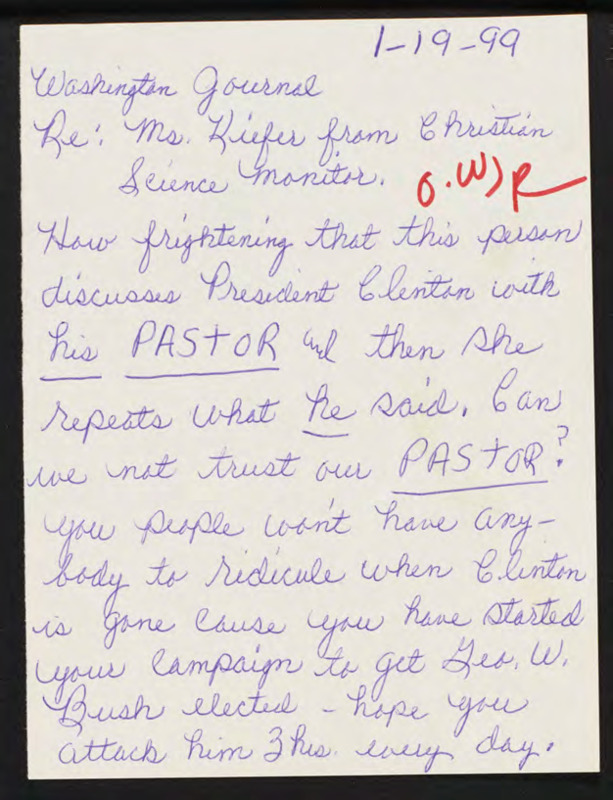 1-19-99
Washington Journal
Re: Ms. Kiefer from Christian
Science Monitor.
How frightening that this person
discusses President Clinton with
his PASTOR and then she
repeats what he said. Can
we not trust our PASTOR?
You people won't have any-
body to ridicule when Clinton
is gone cause you have started
your campaign to get Geo. W.
Bush elected - hope you
attack him 3 hrs. every day.